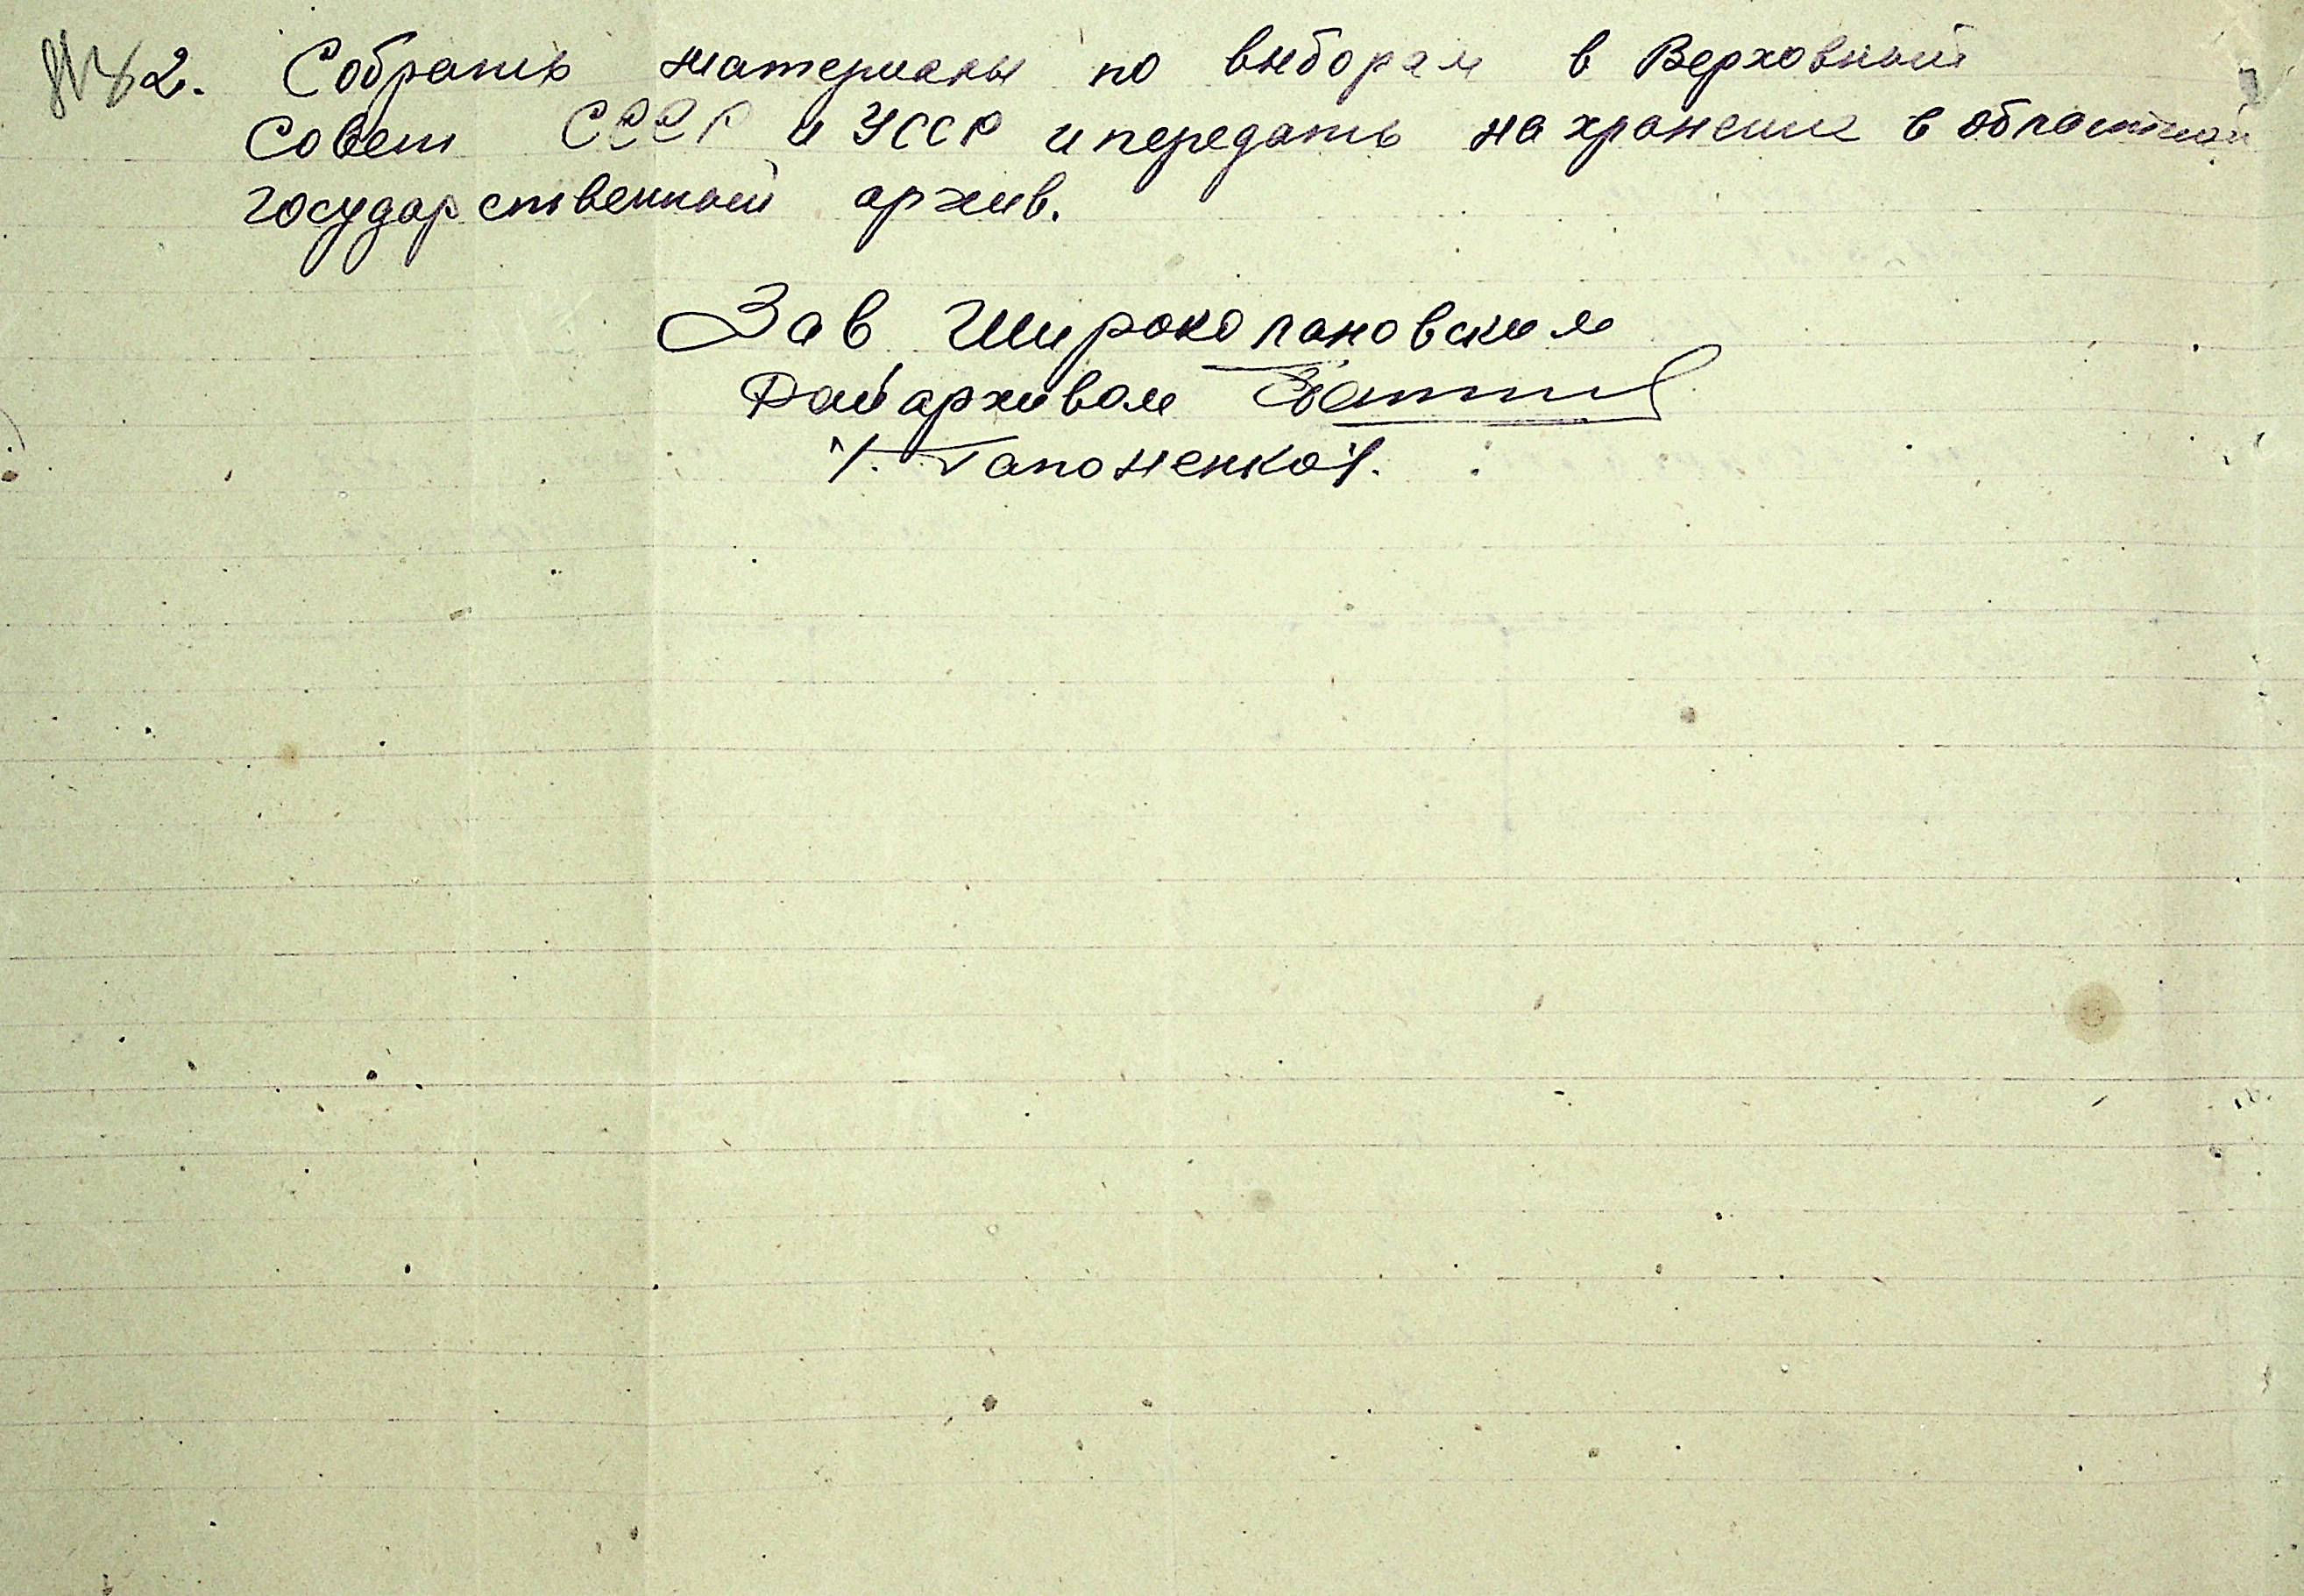 2. Собрать материалы по выборам в Верховный
Совет СССР и УССР и передать на хранение в областной
государственный архив.
Зав Широколановским
Райархивом
/. Гапоненко /.